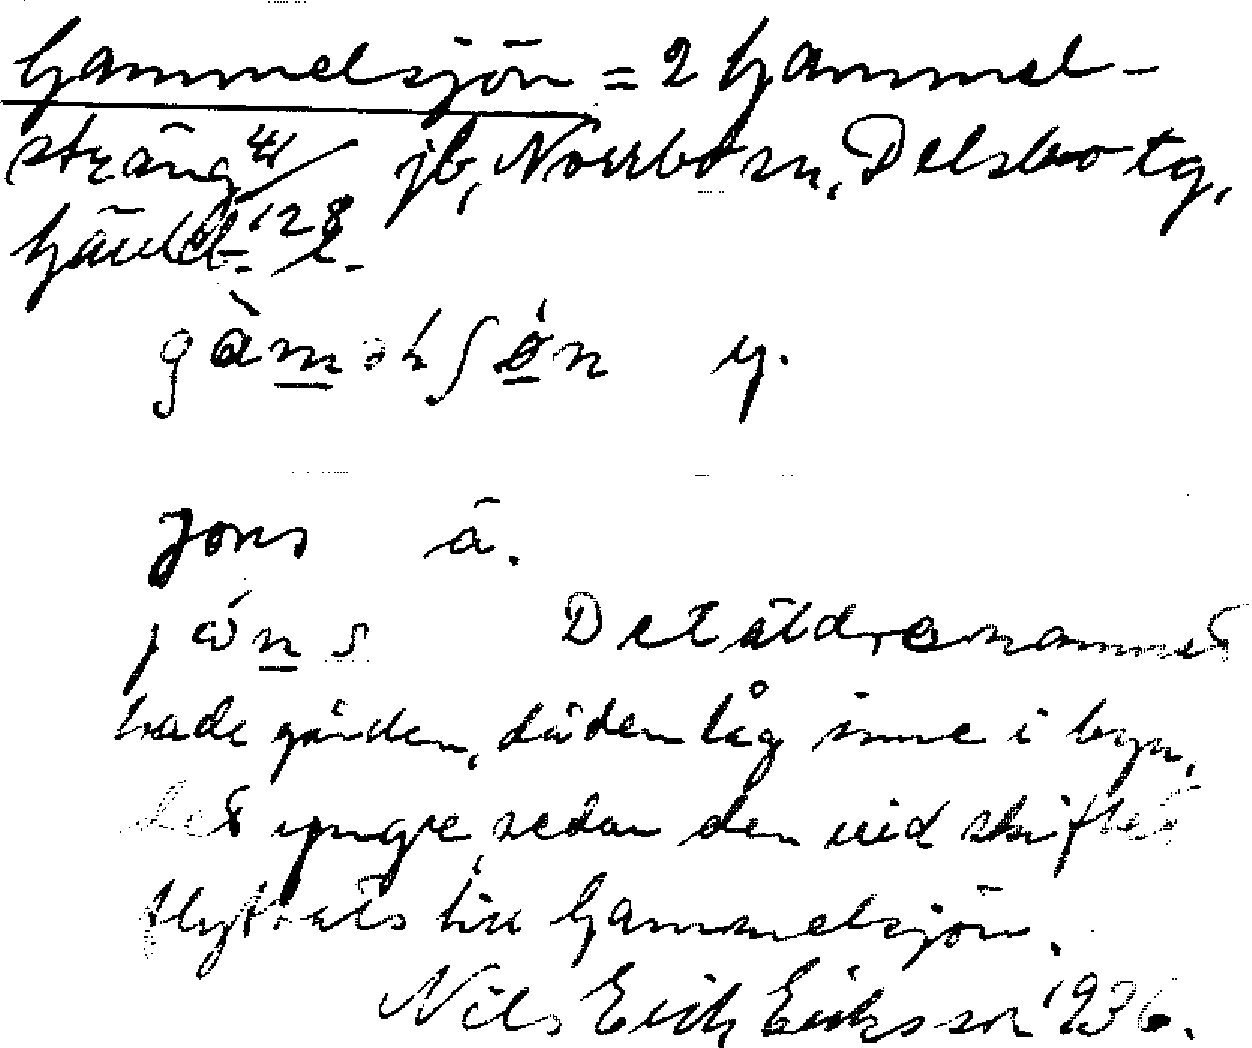 Gammelsjön = 2 Gammel-
sträng 4/1 jb, Norrbo sn, Delsbo tg,
Gävlebg. l. '28
gàməlʃön y.
Jons ä.
jóns Det äldre namnet
hade gården, då den låg inne i byn,
det yngre, sedan den vid skiftet
flyttats till Gammelsjön.
Nils Erik Eriksson 1936.